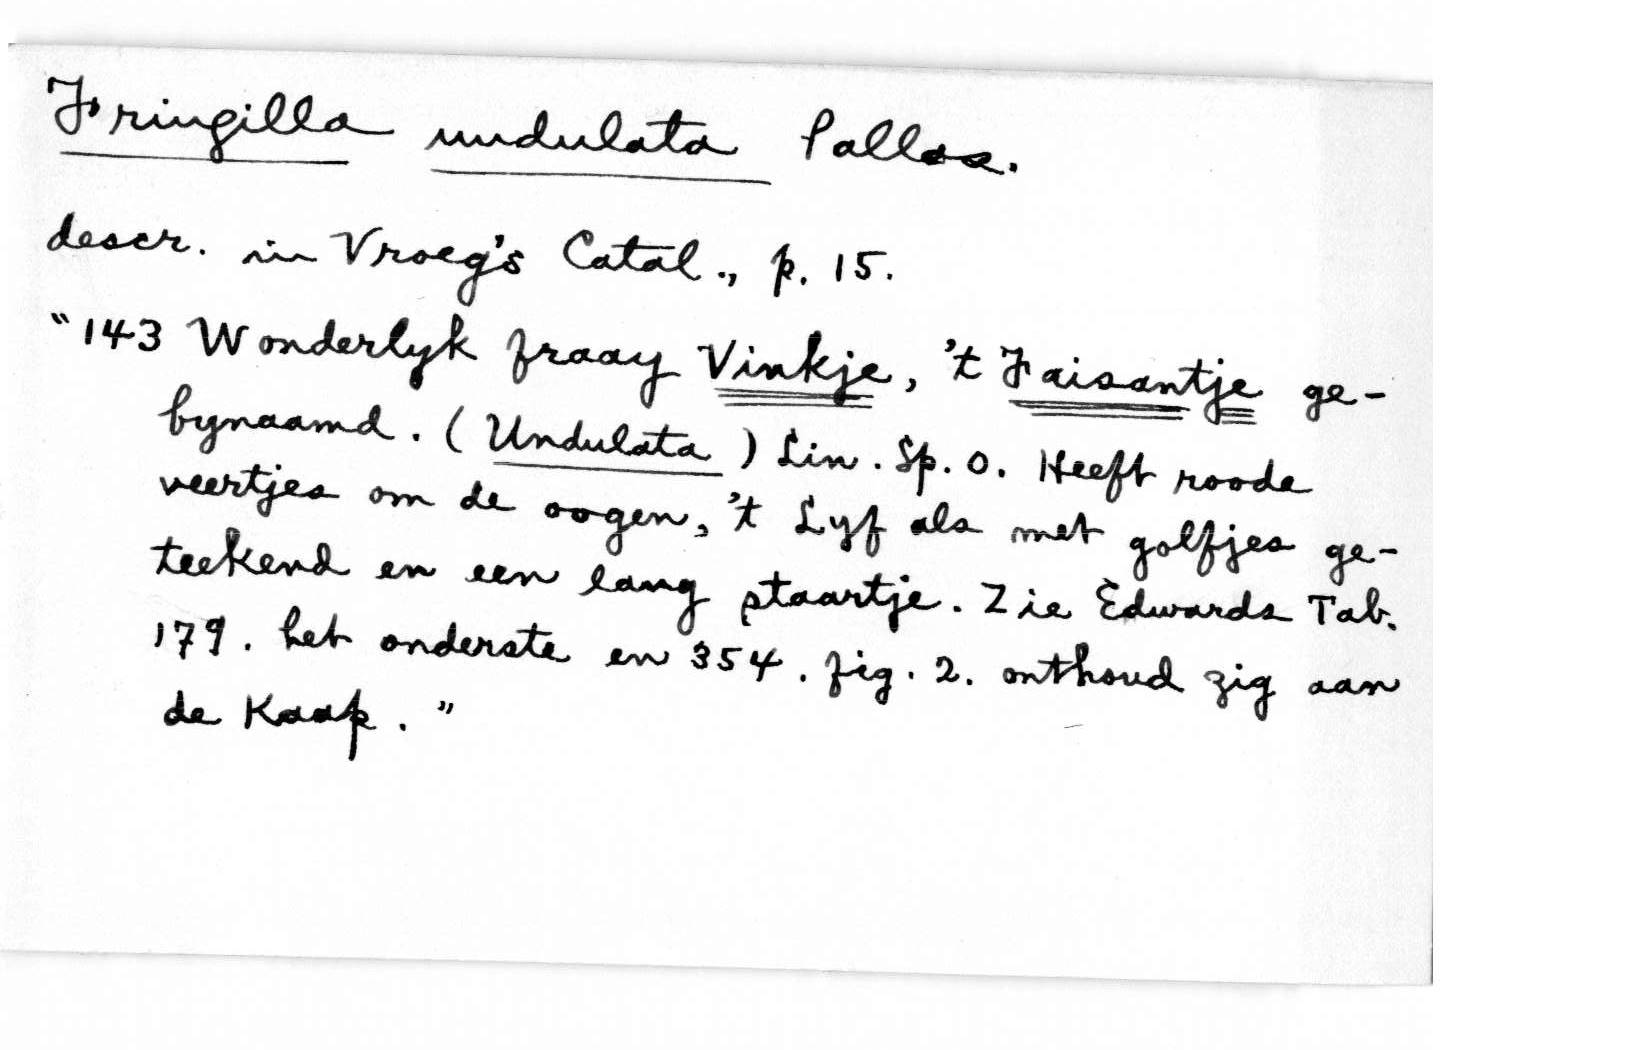 Fringilla undulata Pallas.
descr. in Vroeg's Catal., p. 15.
"143 Wonderlyk fraay Vinkje, 't Faisantje ge-
bynaamd. (Undulata) Lin. Sp. 0. Heeft roode
veertjes om de oogen, 't Lyf als met golfjes ge-
teekend en een lang staartje. Zie Edwards Tab.
179. het onderste en 354. fig. 2. onthoud zig aan
de Kaap."